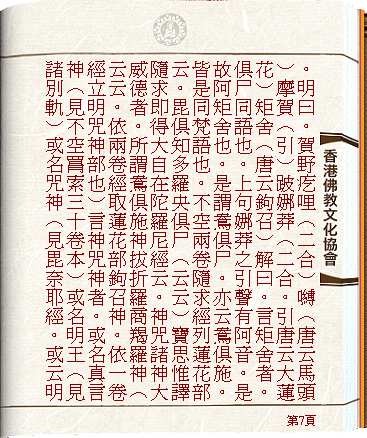 。明曰。賀野疙哩（二合）嚩（唐云馬頭
）摩賀（引）跛娜莽（二合。引唐云大蓮
花）矩舍（唐云鉤召）解曰。言矩舍者。
俱尸同語也。上句娜莽之引聲有阿音。是
故阿矩舍也。是謂鴦俱尸。亦云鴦俱施。
皆是同梵語也。不空兩卷隨求經列蓮花部
云。毘俱知多羅央俱尸（云云）寶思惟譯
隨求即得大自在陀羅尼經云。神咒諸大
威德者。所謂鴦俱施神拔折羅商羯羅神（
云云。依兩卷經取蓮花部鉤召神。依一卷
經立明咒神部也）言神咒神者。或名真言
神（見不空罥索三十卷本）或名明王（見
諸別軌）或名咒神（見毘奈耶經。或云明
香港佛教文化協會
第7頁